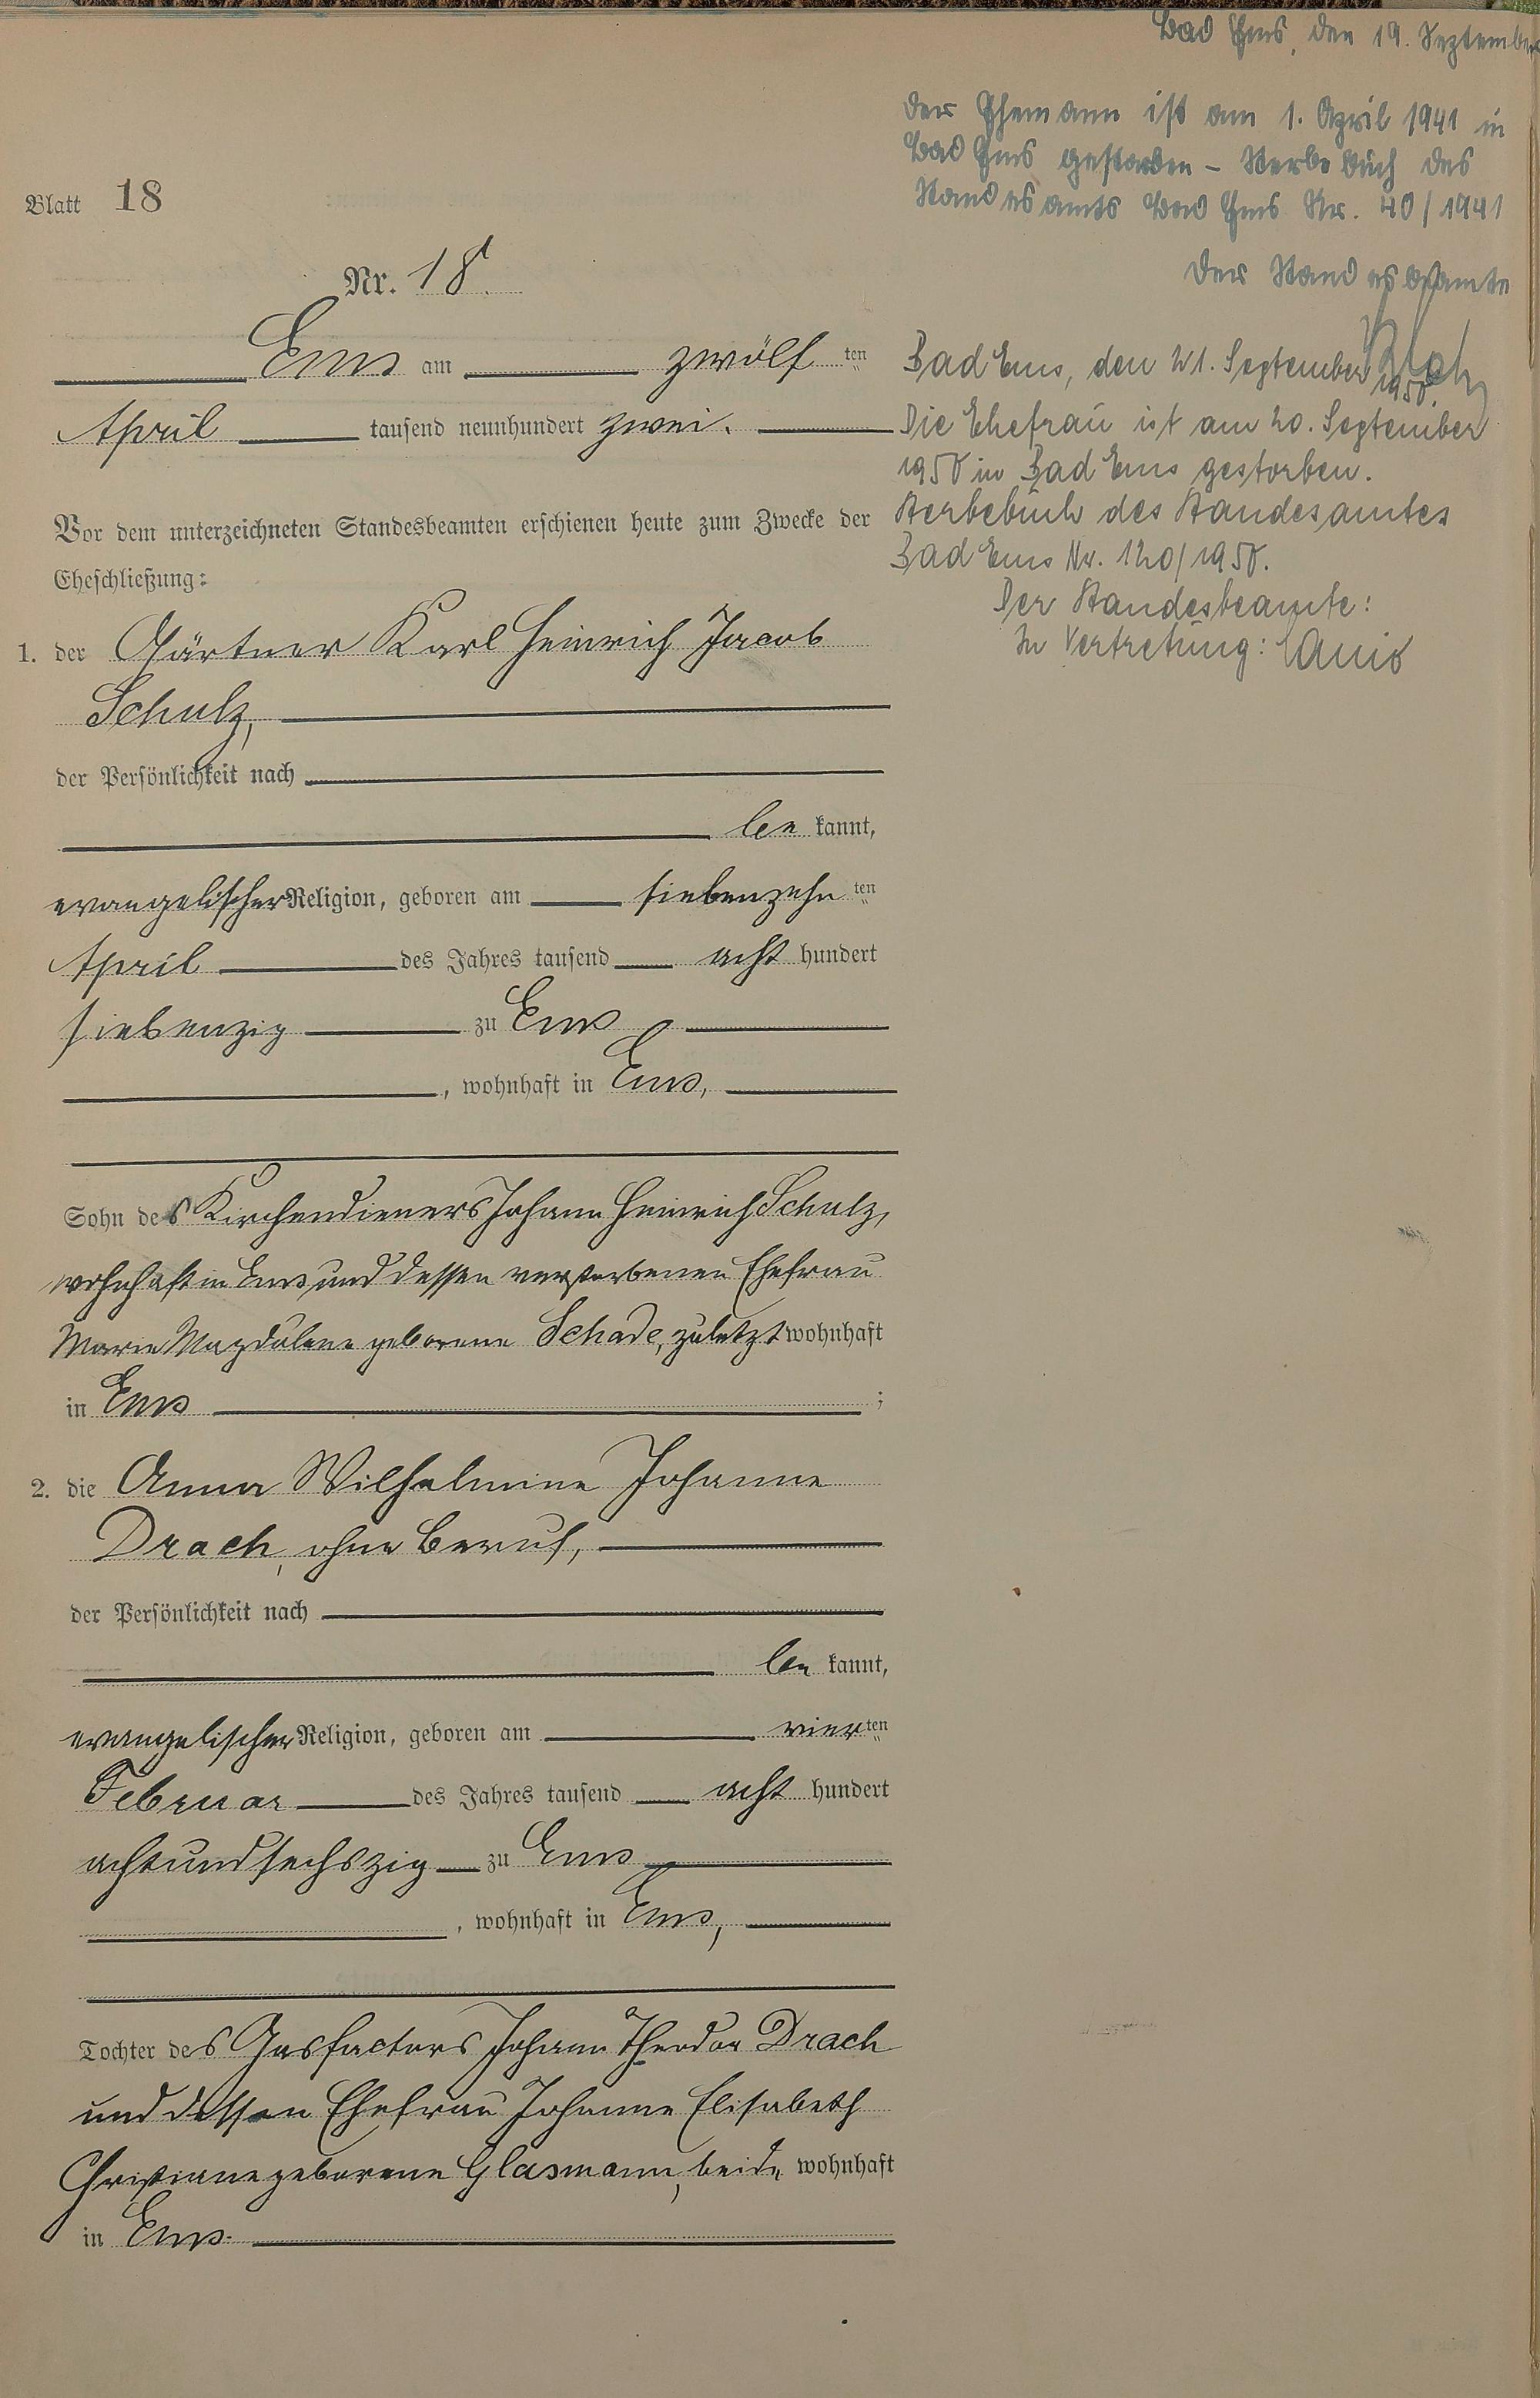 Blatt 18
Nr. 18.
Ems am zwölf ten
April tausend neunhundert zwei.
Vor dem unterzeichneten Standesbeamten erschienen heute zum Zwecke der
Eheschließung:
1. der Gärtner Karl Heinrich Jacob
Schulz,
der Persönlichkeit nach
be kannt,
evangelischer Religion, geboren am siebenzehn ten
April des Jahres tausend acht hundert
siebenzig zu Ems
, wohnhaft in Ems,
Sohn des Kirchendieners Johann Heinrich Schulz,
wohnhaft in Ems und dessen verstorbenen Ehefrau
Marie Magdalene geborene Schade, zuletzt wohnhaft
in Ems ;
2. die Anna Wilhelmine Johanne
Drach, ohne Beruf,
der Persönlichkeit nach
be kannt,
evangelischer Religion, geboren am vier ten
Februar des Jahres tausend acht hundert
achtundsechszig zu Ems
, wohnhaft in Ems,
Tochter des Gasfactors Johann Theodor Drach
und dessen Ehefrau Johanne Elisabeth
Christiane geborene Glasmann, beide wohnhaft
in Ems.
Bad Ems, den 19. September
Der Ehemann ist am 1. April 1941 in
Bad Ems gestorben - Sterbebuch des
Standesamts Bad Ems Nr. 40/1941
Der Standesbeamte
Bad Ems, den 21. September 1950.
Die Ehefrau ist am 20. September
1950 in Bad Ems gestorben.
Sterbebuch des Standesamtes
Bad Ems Nr. 120/1950.
Der Standesbeamte:
In Vertretung: